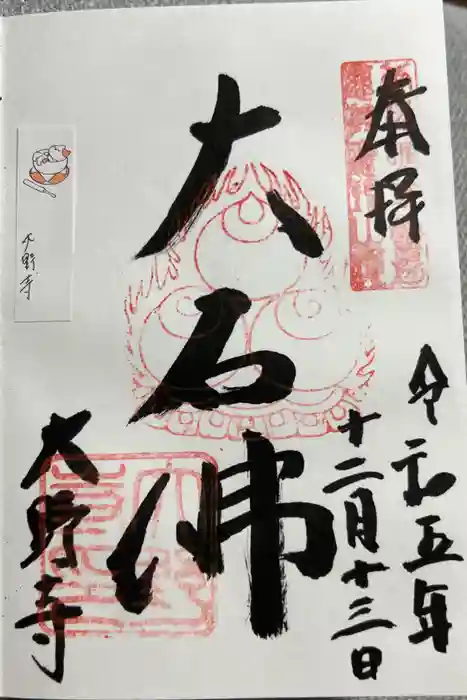 奉拝
令和五年
十二月十三日
大石佛
大野寺
大野寺